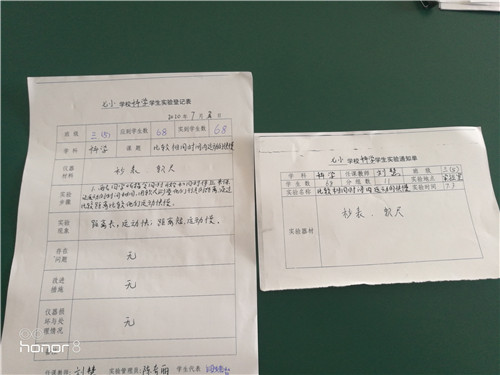 六小 学校科学学生实验登记表
2020年7月3日
班级 三(6) 应到学生数 68 实到学生数 68
学科 科学 课题 比较相同时间内运动的快慢
仪器材料 秒表、软尺
实验步骤
比较距离比较他们运动快慢。
实验现象 距离长,运动快;距离短,运动慢。
存在问题 无
改进措施 无
仪器损坏与处理情况 无
任课教师: 刘慧 实验管理员: 陈春丽 学生代表
六小 学校科学学生实验通知单
学科 科学 任课教师 刘慧 班级 三(6)
学生数 68 分组数 11 实验地点 实验室
实验名称 比较相同时间内运动的快慢 实验时间 7.3
实验器材 秒表、软尺
honor 8